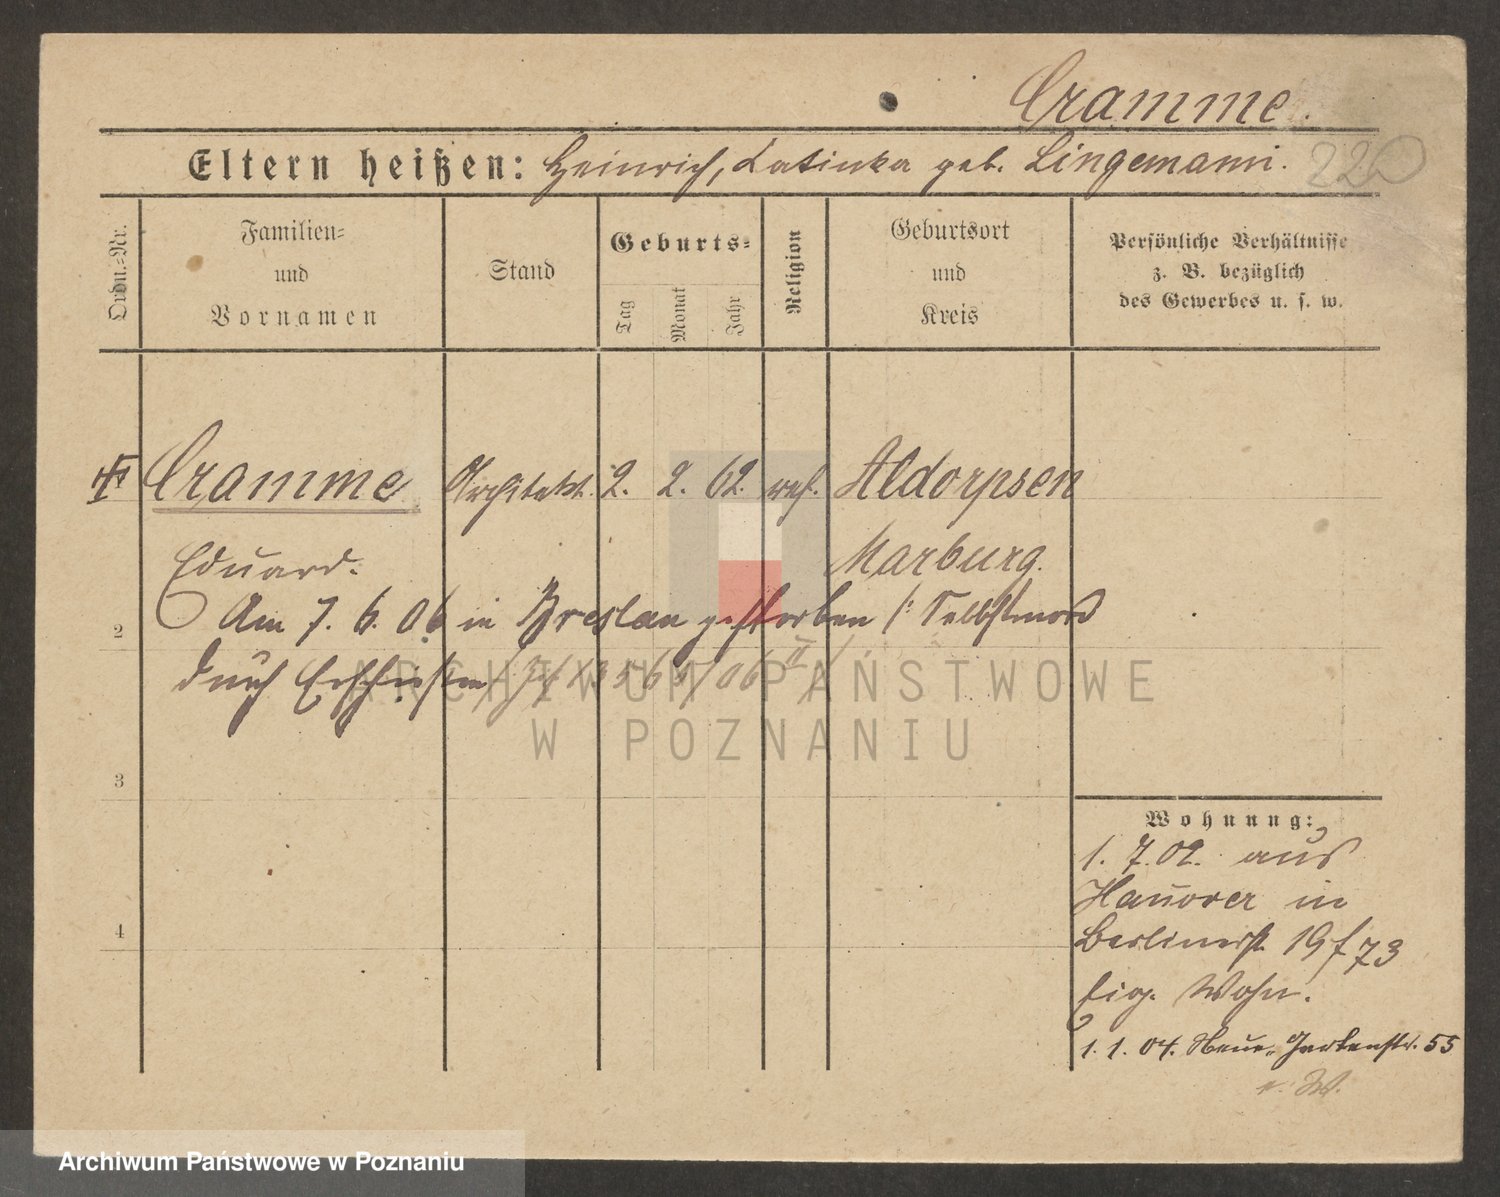 Cramme.
Eltern heißen: Heinrich, Katinka geb. Lingemann.
220
Ordn.-Nr.
Familien-
und
Vornamen
Stand
Geburts-
Tag
Monat
Jahr
Religion
Geburtsort
und
Kreis
Persönliche Verhältnisse
z. B. bezüglich
des Gewerbes u. s. w.
Cramme Architekt. 2. 2. 62. ref. Aldorpsen
Eduard. Marburg.
2 Am 7. 6. 06 in Breslau gestorben /: Selbstmord
durch Erschießen
ARCHIWUM PAŃSTWOWE
W POZNANIU
3
4
Wohnung:
1. 7. 02. aus
Hanover in
Berlinerst. 19
73
eig. Wohn.
1. 1. 04. Neue Gartenstr. 55
Archiwum Państwowe w Poznaniu